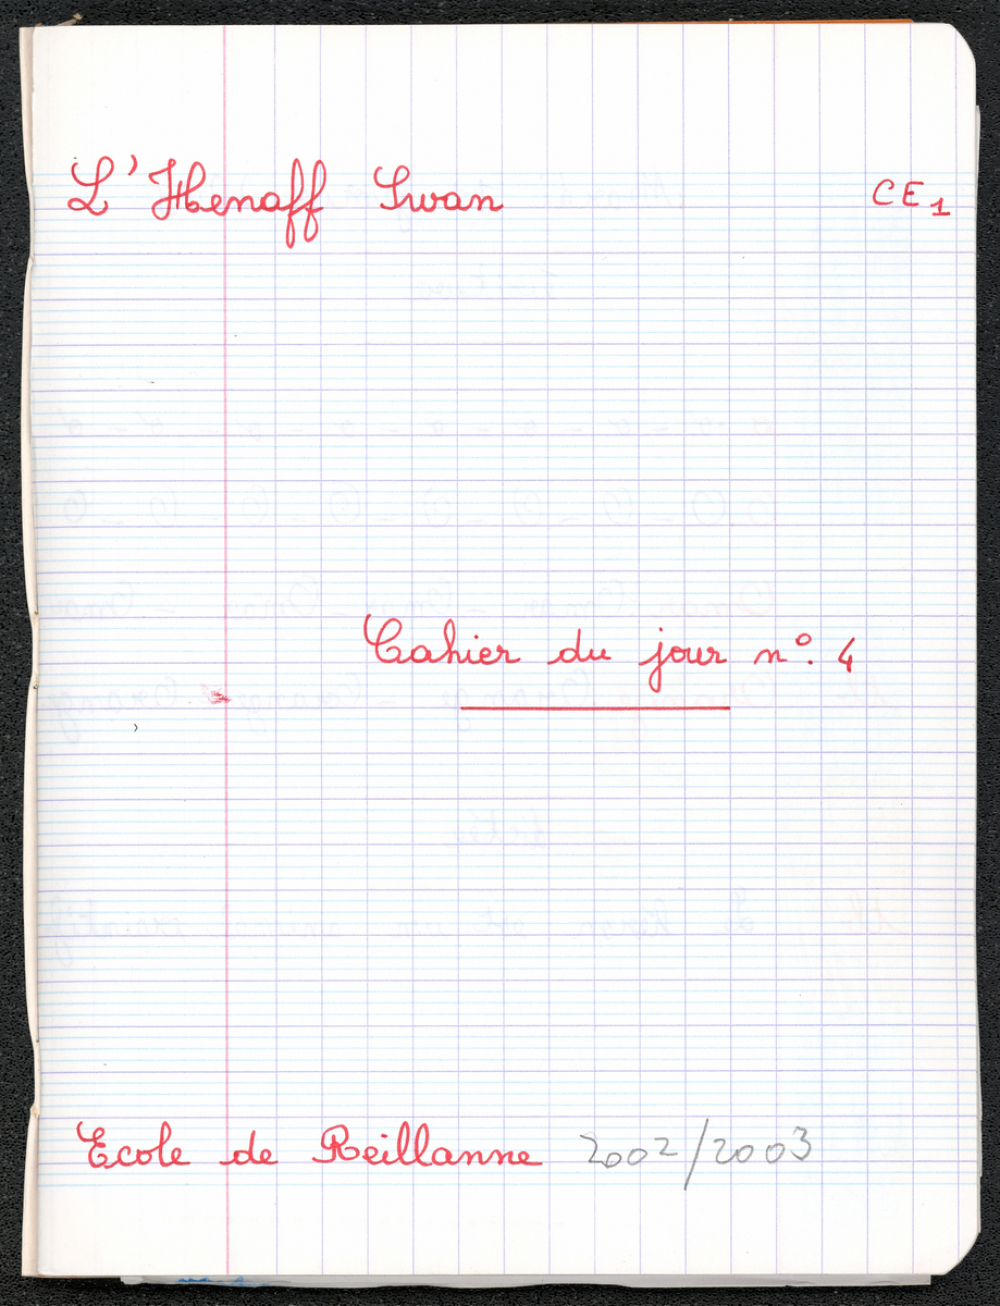 L'Henaff Swan CE1
Cahier du jour n°. 4
Ecole de Reillanne 2002/2003